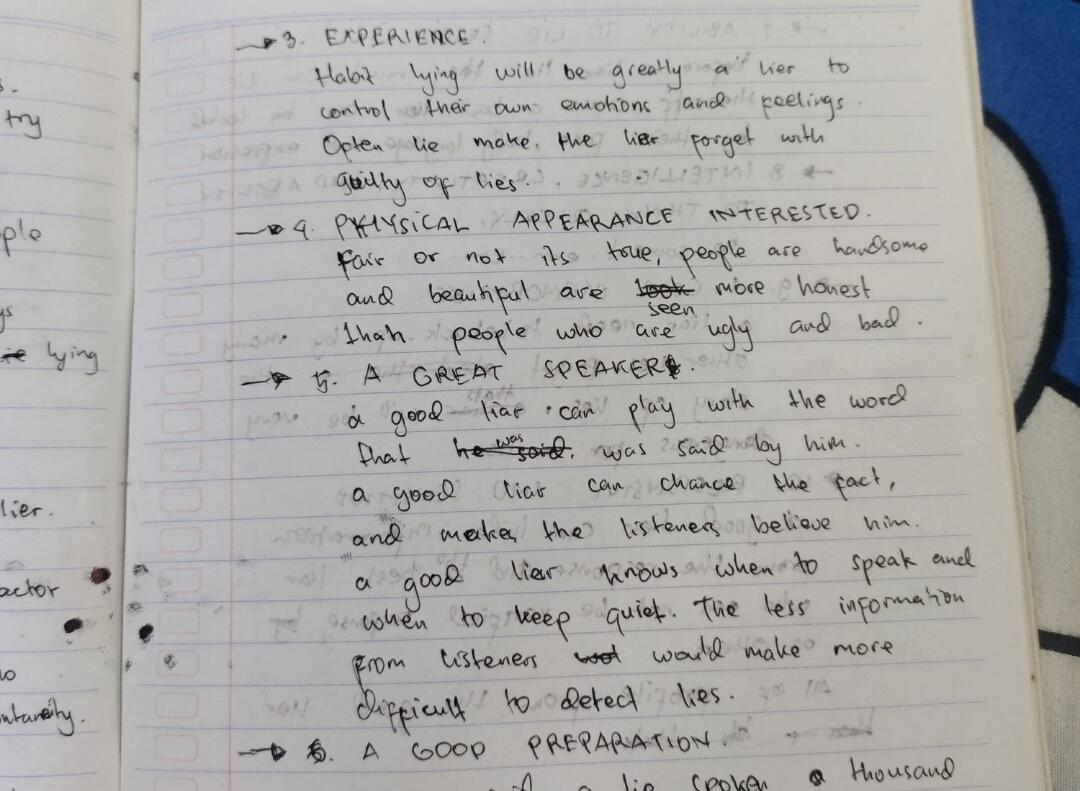 s.
try
ple
gs
lying
lier.
actor
lo
→ 3. EXPERIENCE.
Habit lying will be greatly a lier to
control their own emotions and feelings.
Often lie make, the lier forget with
guilty of lies.
→ 4. PHYSICAL APPEARANCE INTERESTED.
fair or not its true, people are handsome
and beautiful are look seen more honest
than people who are ugly and bad.
→ 5. A GREAT SPEAKER.
a good liar can play with the word
that he was said, was said by him.
a good liar can chance the fact,
and makes the listeners believe him.
a good liar knows when to speak and
when to keep quiet. The less information
from listeners would make more
difficult to detect lies.
→ 6. A GOOD PREPARATION.
a lie spoken a thousand